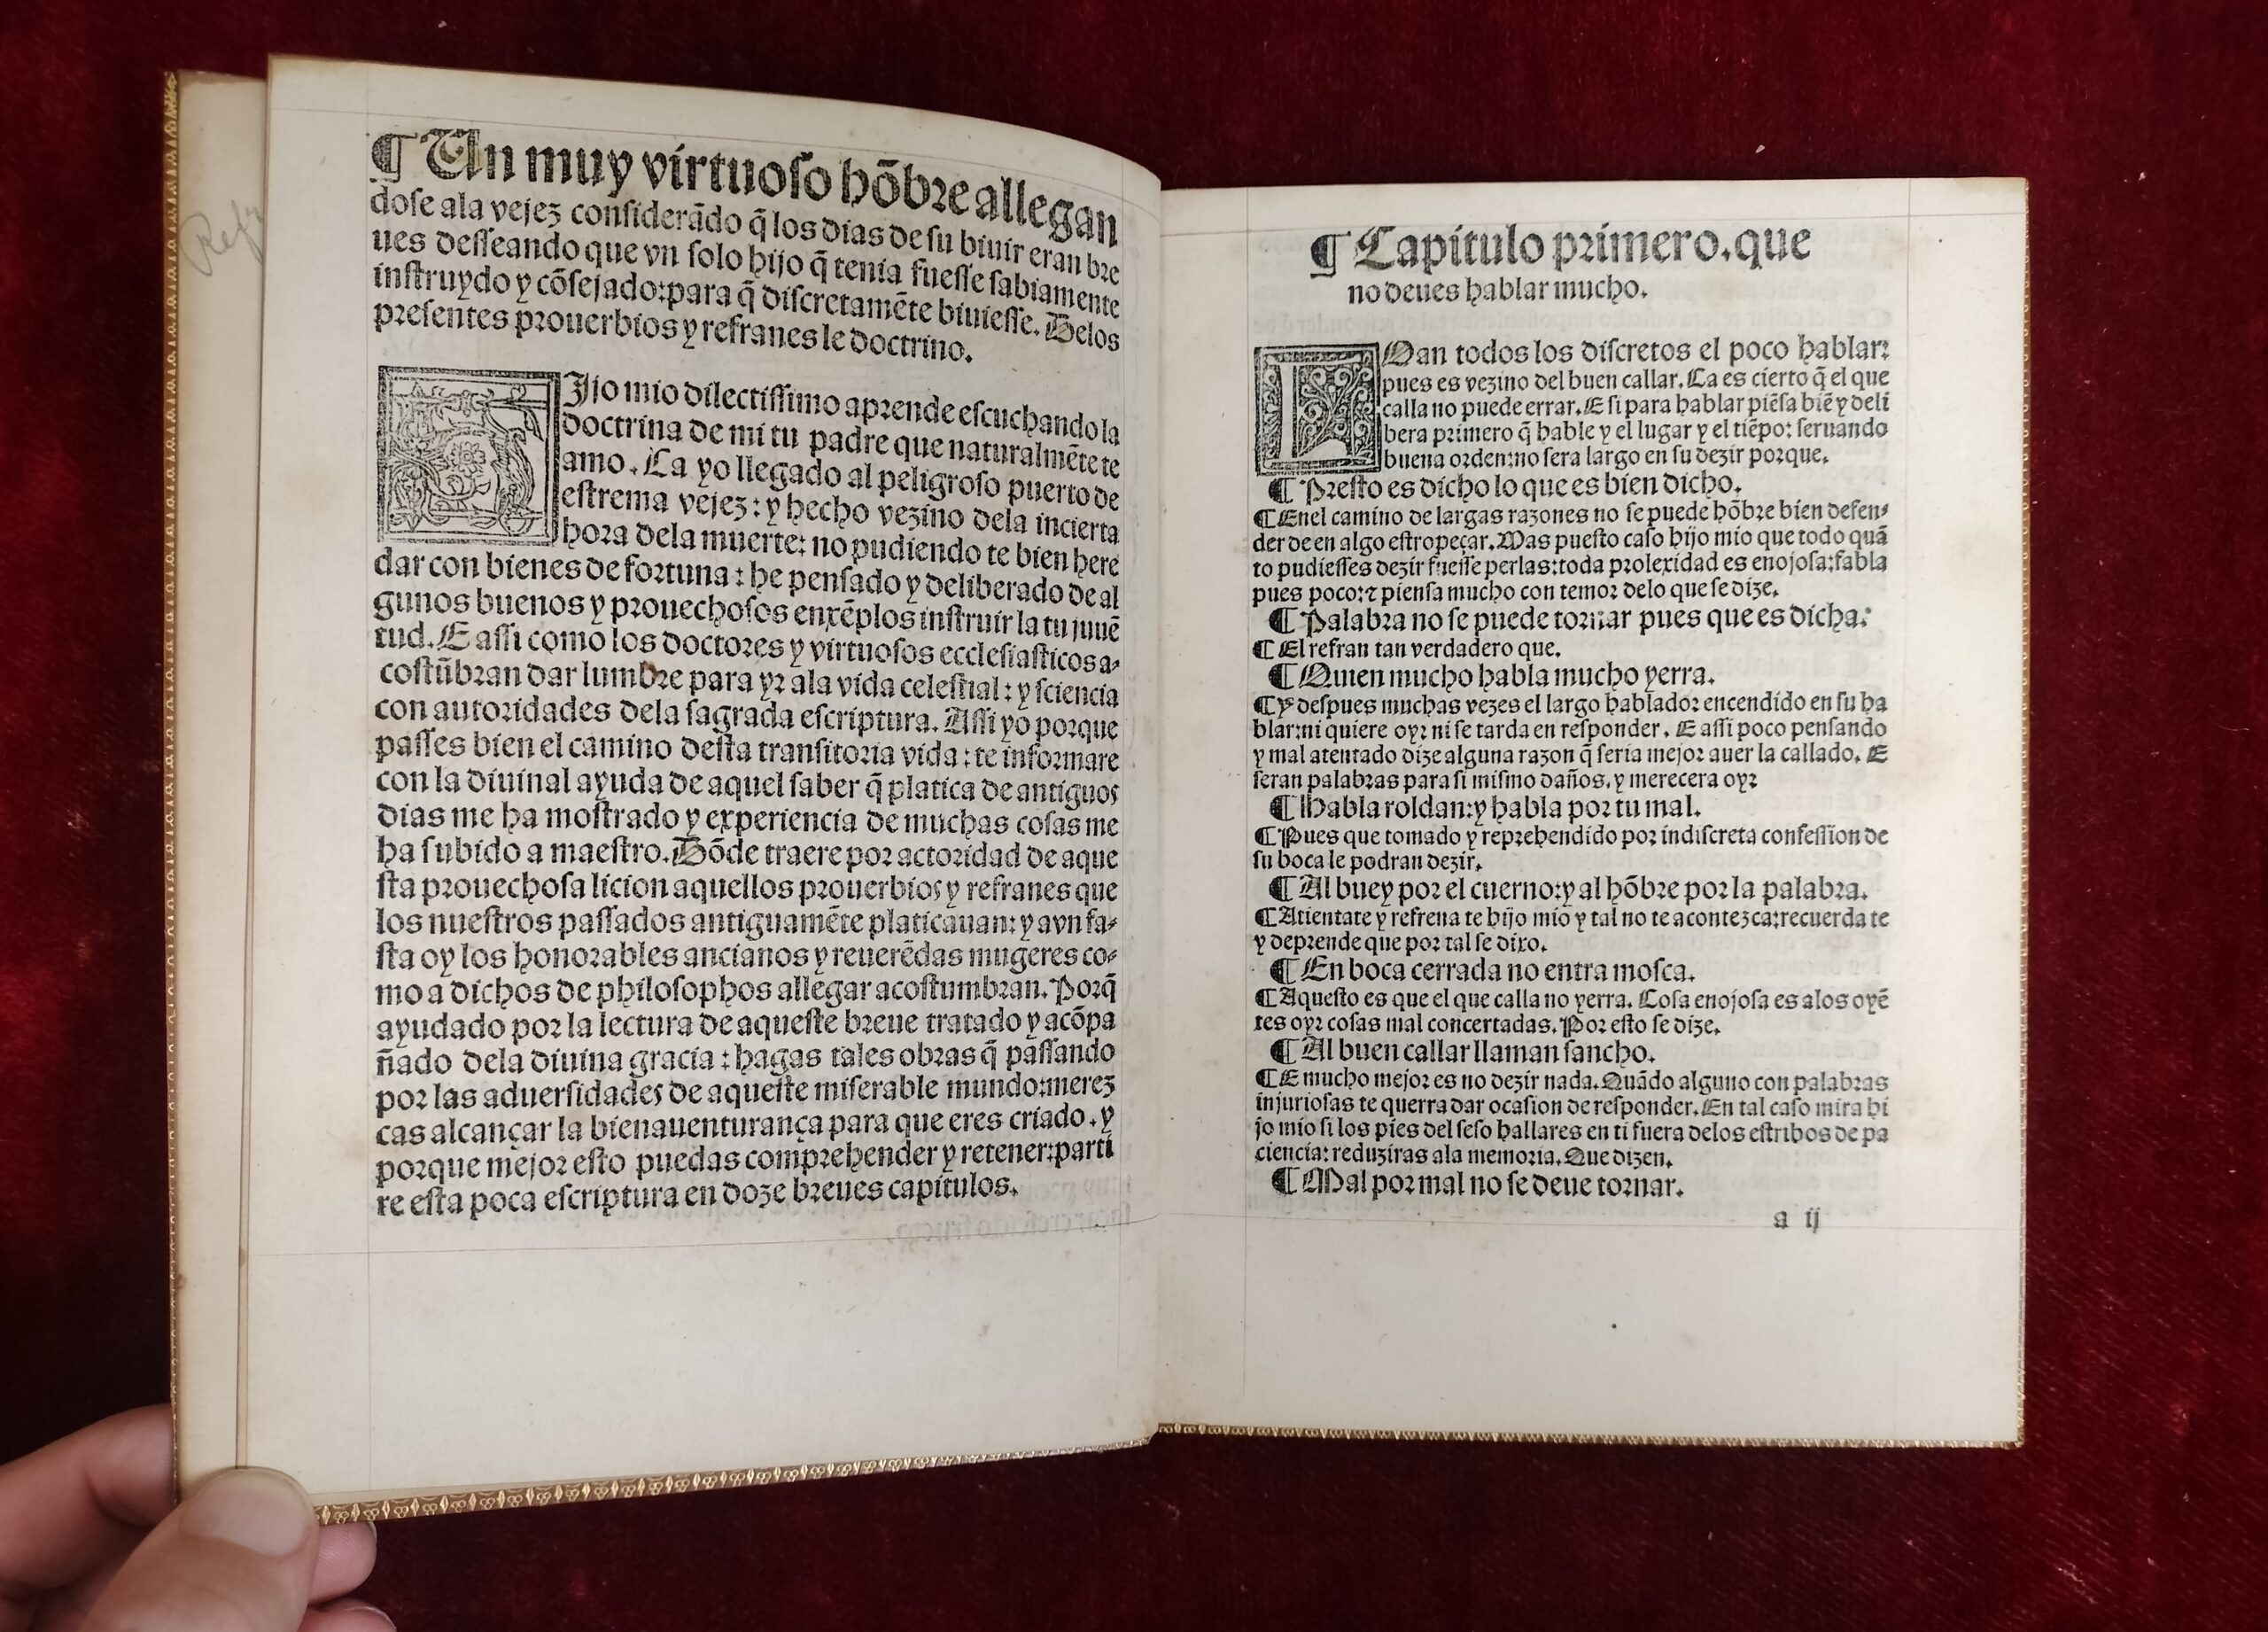 Refr
¶ Un muy virtuoso hõbre allegan
dose ala vejez considerãdo q̃ los dias de su biuir eran bre
ues desseando que vn solo hijo q̃ tenia fuesse sabiamente
instruydo y cõsejado:para q̃ discretamẽte biuiesse. Delos
presentes prouerbios y refranes le doctrino.
Jjo mio dilectissimo aprende escuchando la
doctrina de mi tu padre que naturalmẽte te
amo. Ca yo llegado al peligroso puerto de
estrema vejez: y hecho vezino dela incierta
hora dela muerte: no pudiendo te bien here
dar con bienes de fortuna: he pensado y deliberado de al
gunos buenos y prouechosos enxẽplos instruir la tu juuẽ
tud. E assi como los doctores y virtuosos ecclesiasticos a-
costũbran dar lumbre para yr ala vida celestial: y sciencia
con autoridades dela sagrada escriptura. Assi yo porque
passes bien el camino desta transitoria vida: te informare
con la diuinal ayuda de aquel saber q̃ platica de antiguos
dias me ha mostrado y experiencia de muchas cosas me
ha subido a maestro. Dõde traere por actoridad de aque
sta prouechosa licion aquellos prouerbios y refranes que
los nuestros passados antiguamẽte platicauan: y avn fa-
sta oy los honorables ancianos y reuerẽdas mugeres co-
mo a dichos de philosophos allegar acostumbran. Porq̃
ayudado por la lectura de aqueste breue tratado y acõpa
ñado dela diuina gracia: hagas tales obras q̃ passando
por las aduersidades de aqueste miserable mundo:merez
cas alcançar la bienauenturança para que eres criado. y
porque mejor esto puedas comprehender y retener:parti
re esta poca escriptura en doze breues capitulos.
¶ Capitulo primero.que
no deues hablar mucho.
LOan todos los discretos el poco hablar:
pues es vezino del buen callar. Ca es cierto q̃ el que
calla no puede errar. E si para hablar piẽsa biẽ y deli
bera primero q̃ hable y el lugar y el tiẽpo: seruando
buena orden:no sera largo en su dezir porque.
¶ Presto es dicho lo que es bien dicho.
¶ Enel camino de largas razones no se puede hõbre bien defen-
der de en algo estropeçar. Mas puesto caso hijo mio que todo quã
to pudiesses dezir fuesse perlas:toda prolexidad es enojosa:fabla
pues poco:⁊ piensa mucho con temor delo que se dize.
¶ Palabra no se puede tornar pues que es dicha:
¶ El refran tan verdadero que.
¶ Quien mucho habla mucho yerra.
¶ Y despues muchas vezes el largo hablador encendido en su ha
blar:ni quiere oyr ni se tarda en responder. E assi poco pensando
y mal atentado dize alguna razon q̃ seria mejor auer la callado. E
seran palabras para si mismo daños. y merecera oyr
¶ Habla roldan:y habla por tu mal.
¶ Pues que tomado y reprehendido por indiscreta confession de
su boca le podran dezir.
¶ Al buey por el cuerno:y al hõbre por la palabra.
¶ Atientate y refrena te hijo mio y tal no te acontezca:recuerda te
y deprende que por tal se dixo.
¶ En boca cerrada no entra mosca.
¶ Aquesto es que el que calla no yerra. Cosa enojosa es alos oyẽ
tes oyr cosas mal concertadas. Por esto se dize.
¶ Al buen callar llaman sancho.
¶ E mucho mejor es no dezir nada. Quãdo alguno con palabras
injuriosas te querra dar ocasion de responder. En tal caso mira hi
jo mio si los pies del seso hallares en ti fuera delos estribos de pa
ciencia: reduziras ala memoria. Que dizen.
¶ Mal por mal no se deue tornar.
a ij